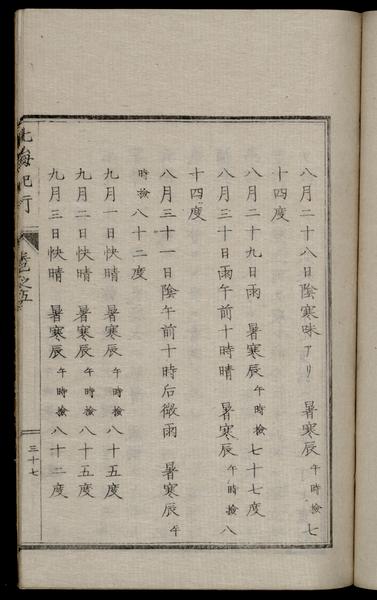 八月二十八日陰寒味アリ　暑寒辰午時撿七
十四度
八月二十九日雨　暑寒辰午時撿七十七度
八月三十日雨午前十時晴　暑寒辰午時撿八
十四度
八月三十一日陰午前十時后微雨　暑寒辰午
時撿八十二度
九月一日快晴　暑寒辰午時撿八十五度
九月二日快晴　暑寒辰午時撿八十五度
九月三日快晴　暑寒辰午時撿八十二度
北海紀行　卷之五　三十七